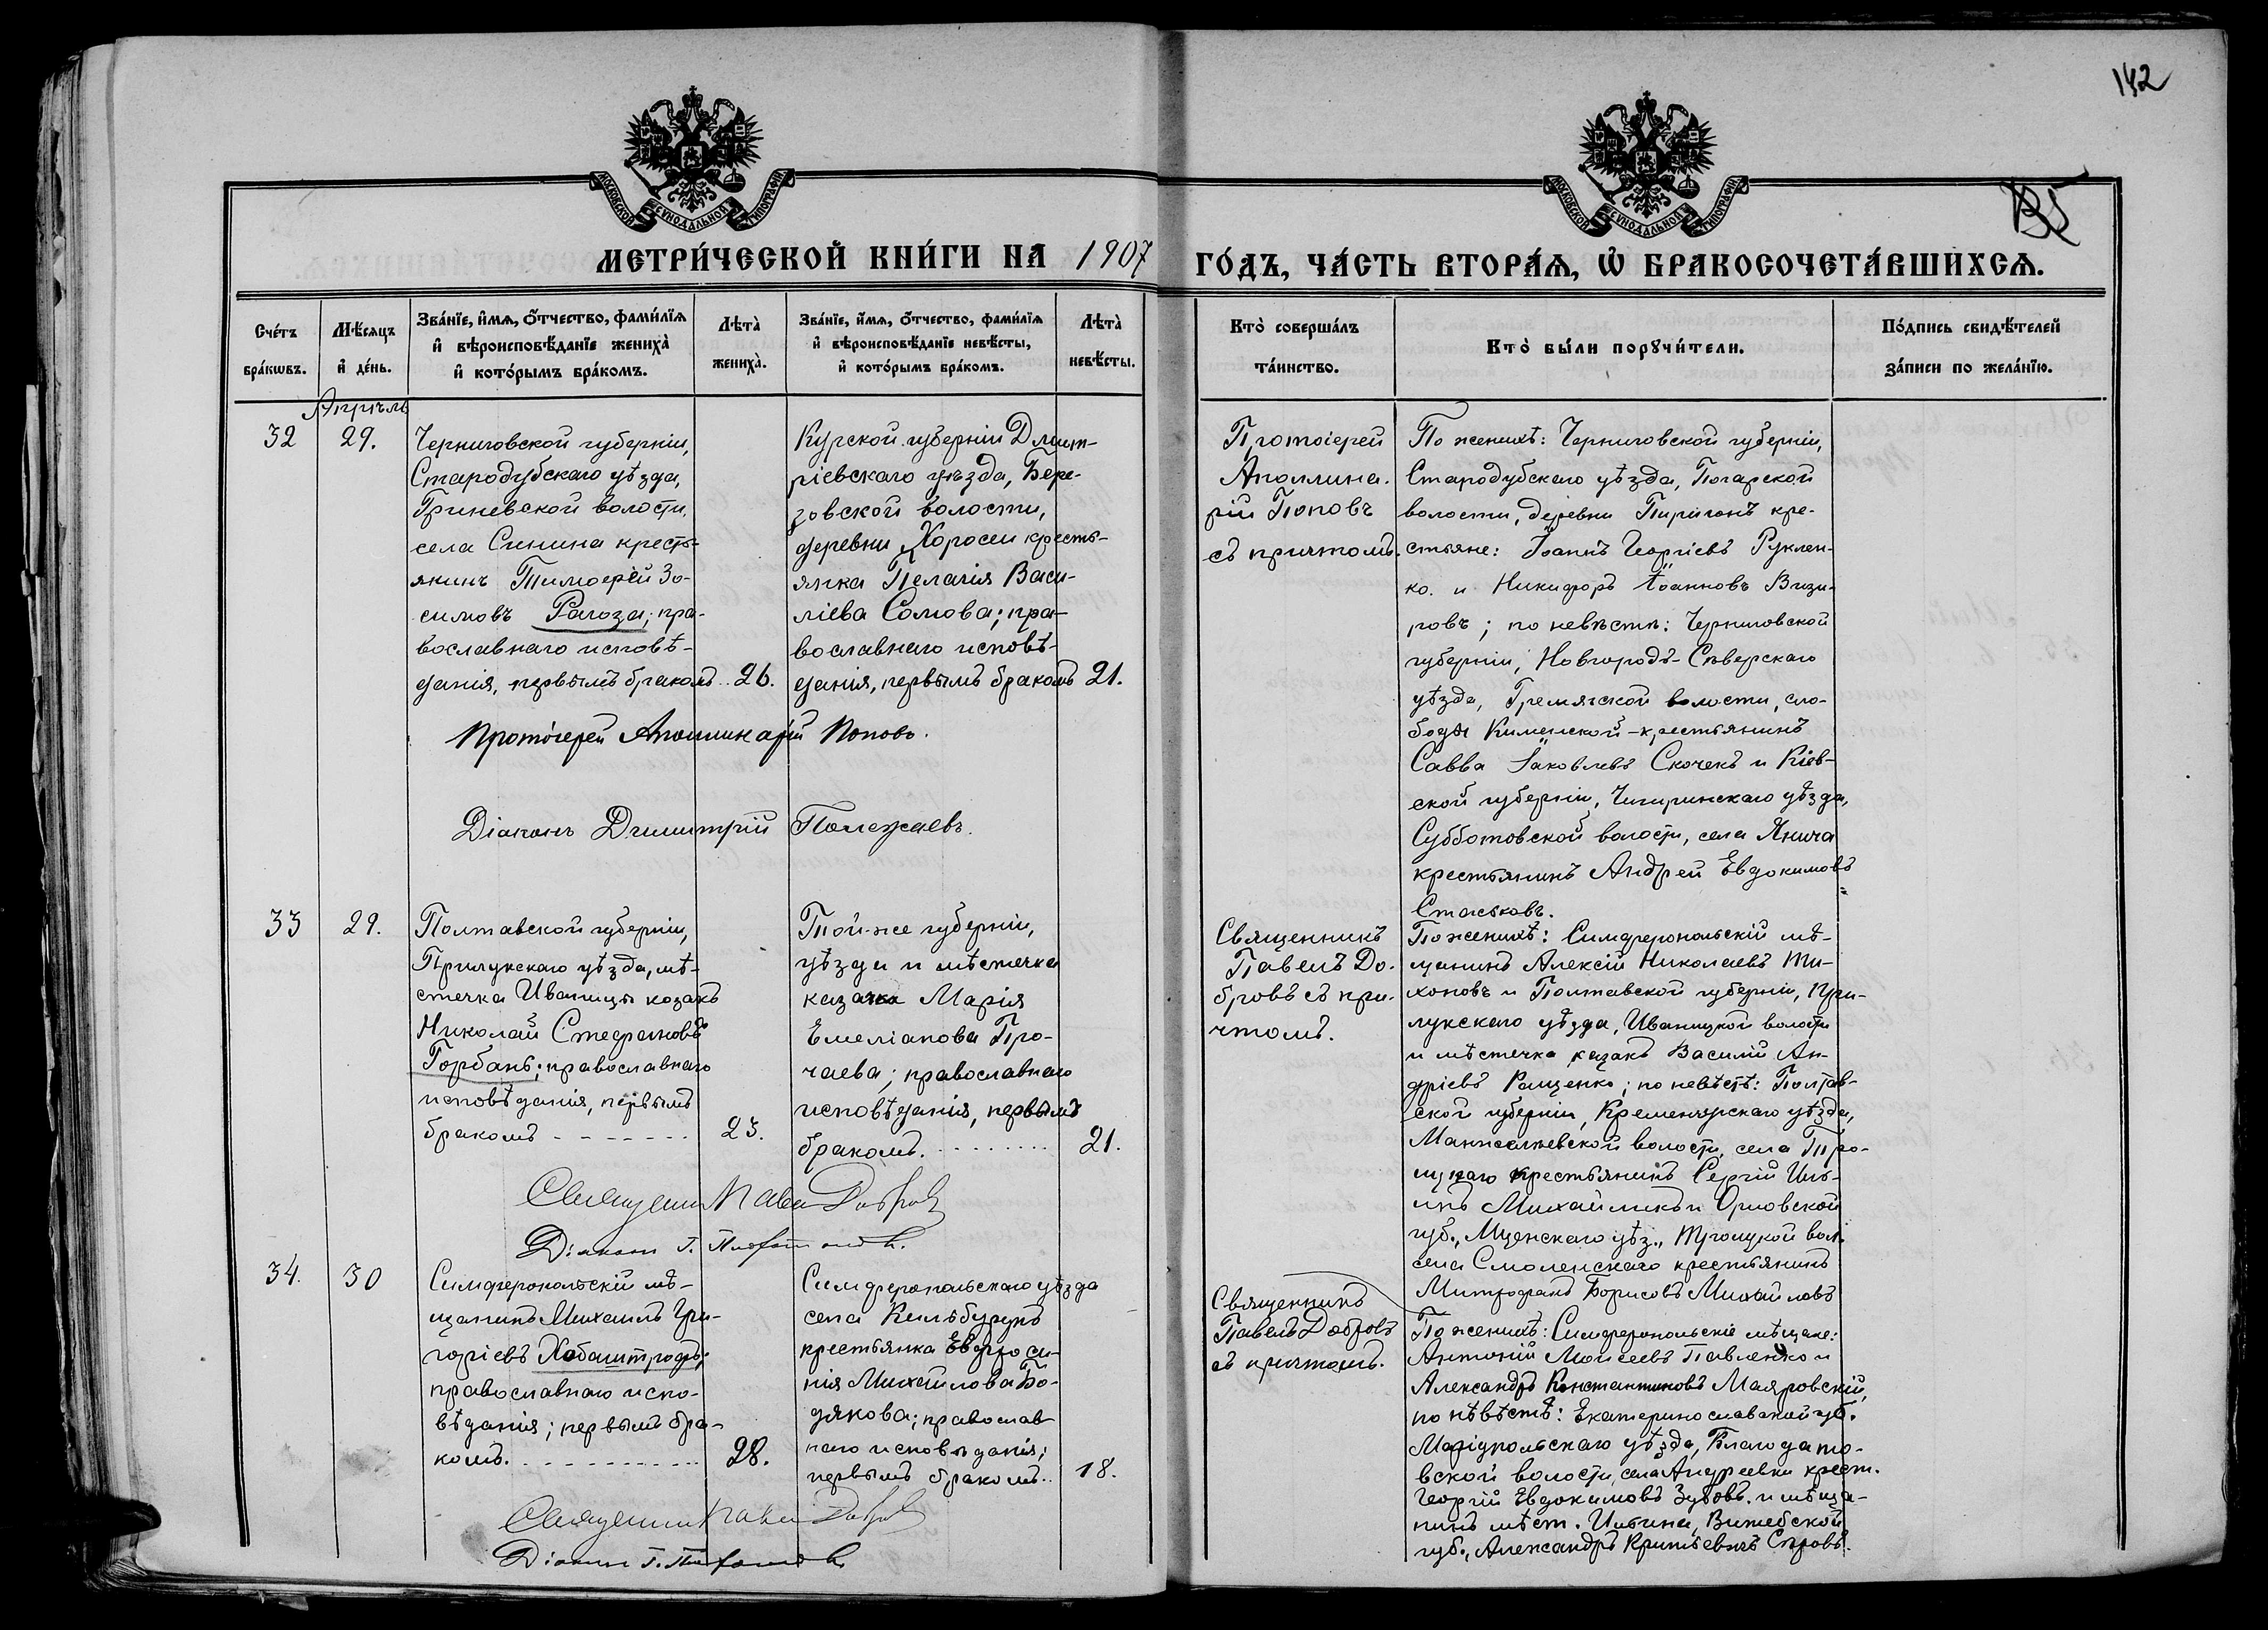 142
135
МОСКОВСКОЙ СѴНОДАЛЬНОЙ ТИПОГРАФІИ
МОСКОВСКОЙ СѴНОДАЛЬНОЙ ТИПОГРАФІИ
МЕТРИ́ЧЕСКОЙ КНИ́ГИ НА 1907 ГО́ДЪ, ЧА́СТЬ ВТОРА́Ѧ, Ѡ БРАКОСОЧЕТА́ВШИХСѦ.
Сче́тъ бра́кѡвъ.
Мѣ́сяцъ и де́нь.
Зва́нїе, и́мѧ, о́тчество, фами́лїѧ
и вѣроисповѣ́данїе жениха̀
и кото́рымъ бра́комъ.
Лѣта̀ жениха̀.
Зва́нїе, и́мѧ, о́тчество, фами́лїѧ
и вѣроисповѣ́данїе невѣ́сты,
и кото́рымъ бра́комъ.
Лѣта̀ невѣ́сты.
Кто̀ соверша́лъ та́инство.
Кто̀ бы́ли порꙋчи́тели.
По́дпись свидѣ́телей за́писи по жела́нїю.
Апрѣль
32
29.
Черниговской губерніи,
Стародубскаго уѣзда,
Гриневской волости,
села Синина кресть-
янинъ Тимоѳей Зо-
симовъ Рагоза; пра-
вославнаго исповѣ-
данія, первымъ бракомъ. 26.
Курской губерніи Дмит-
ріевскаго уѣзда, Бере-
зовской волости,
деревни Хоросеи кресть-
янка Пелагія Васи-
ліева Сомова; пра-
вославнаго исповѣ-
данія, первымъ бракомъ 21.
Протоіерей Аполлинарій Поповъ.
Діаконъ Димитрій Полежаевъ.
Протоіерей
Аполлина-
рій Поповъ
съ причтомъ.
По женихѣ: Черниговской губерніи,
Стародубскаго уѣзда, Погарской
волости, деревни Пиригонъ кре-
стьяне: Іоаннъ Георгіевъ Руклен-
ко и Никифоръ Іоанновъ Визи-
ровъ; по невѣстѣ: Черниговской
губерніи, Новгородъ-Сѣверскаго
уѣзда, Гремячской волости, сло-
боды Кименской - крестьянинъ
Савва Іаковлевъ Скочекъ и Кіев-
ской губерніи, Чигиринскаго уѣзда,
Субботовской волости, села Янича
крестьянинъ Андрей Евдокимовъ
Стаськовъ.
33
29.
Полтавской губерніи,
Прилукскаго уѣзда, мѣ-
стечка Иваницы козакъ
Николай Стефановъ
Горбань; православнаго
исповѣданія, первымъ
бракомъ 23.
Той-же губерніи,
уѣзда и мѣстечка
казачка Марія
Емеліанова Про-
чаева; православнаго
исповѣданія, первымъ
бракомъ. 21.
Священникъ Павелъ Добровъ
Діаконъ Г.
Священникъ
Павелъ До-
бровъ съ при-
чтомъ.
По женихѣ: Симферопольскій мѣ-
щанинъ Алексій Николаевъ Ти-
хоновъ и Полтавской губерніи, При-
лукскаго уѣзда, Иваницкой волости
и мѣстечка казакъ Василій Ан-
дріевъ Ращенко; по невѣстѣ: Полтав-
ской губерніи, Кременчугскаго уѣзда,
Манжалѣевской волости, села Тро-
ицкаго крестьянинъ Сергій Иль-
инъ Михайликъ и Орловской
губ., Мценскаго уѣз., вол.
села Смоленскаго крестьянинъ
Митрофанъ Борисовъ Михайловъ
34.
30
Симферопольскій мѣ-
щанинъ Михаилъ Гри-
горіевъ Хабаштродъ;
православнаго испо-
вѣданія; первымъ бра-
комъ. 28.
Симферопольскаго уѣзда
села Кильбурунъ
крестьянка Евфроси-
нія Михайлова Бо-
дякова; православ-
наго исповѣданія;
первымъ бракомъ. 18.
Священникъ Павелъ Добровъ
Діаконъ Г.
Священникъ
Павелъ Добровъ
съ причтомъ.
По женихѣ: Симферопольскіе мѣщане:
Антоній Моисеевъ Павленко и
Александръ Константиновъ Маяровскій,
по невѣстѣ: Екатеринославской губ.
Маріупольскаго уѣзда, Благодато-
вской волости, села Андреевки крест.
Георгій Евдокимовъ Зубовъ. и мѣща-
нинъ мѣст. Ильина, Витебской
губ., Александръ Сѣровъ.